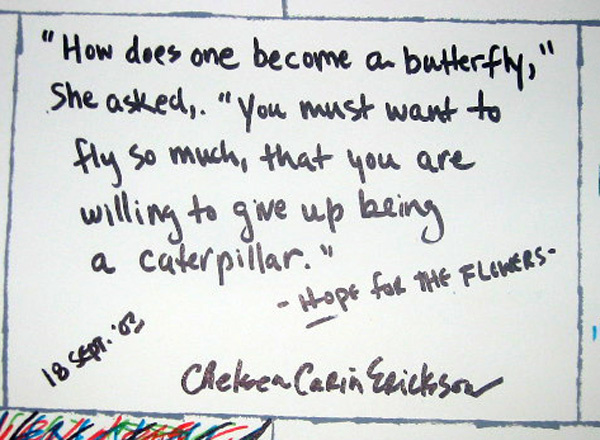 "How does one become a butterfly,"
She asked,. "You must want to
fly so much, that you are
willing to give up being
a caterpillar."
- Hope for THE FLOWERS-
18 SEPT. '03
Chelsea Carin Erickson